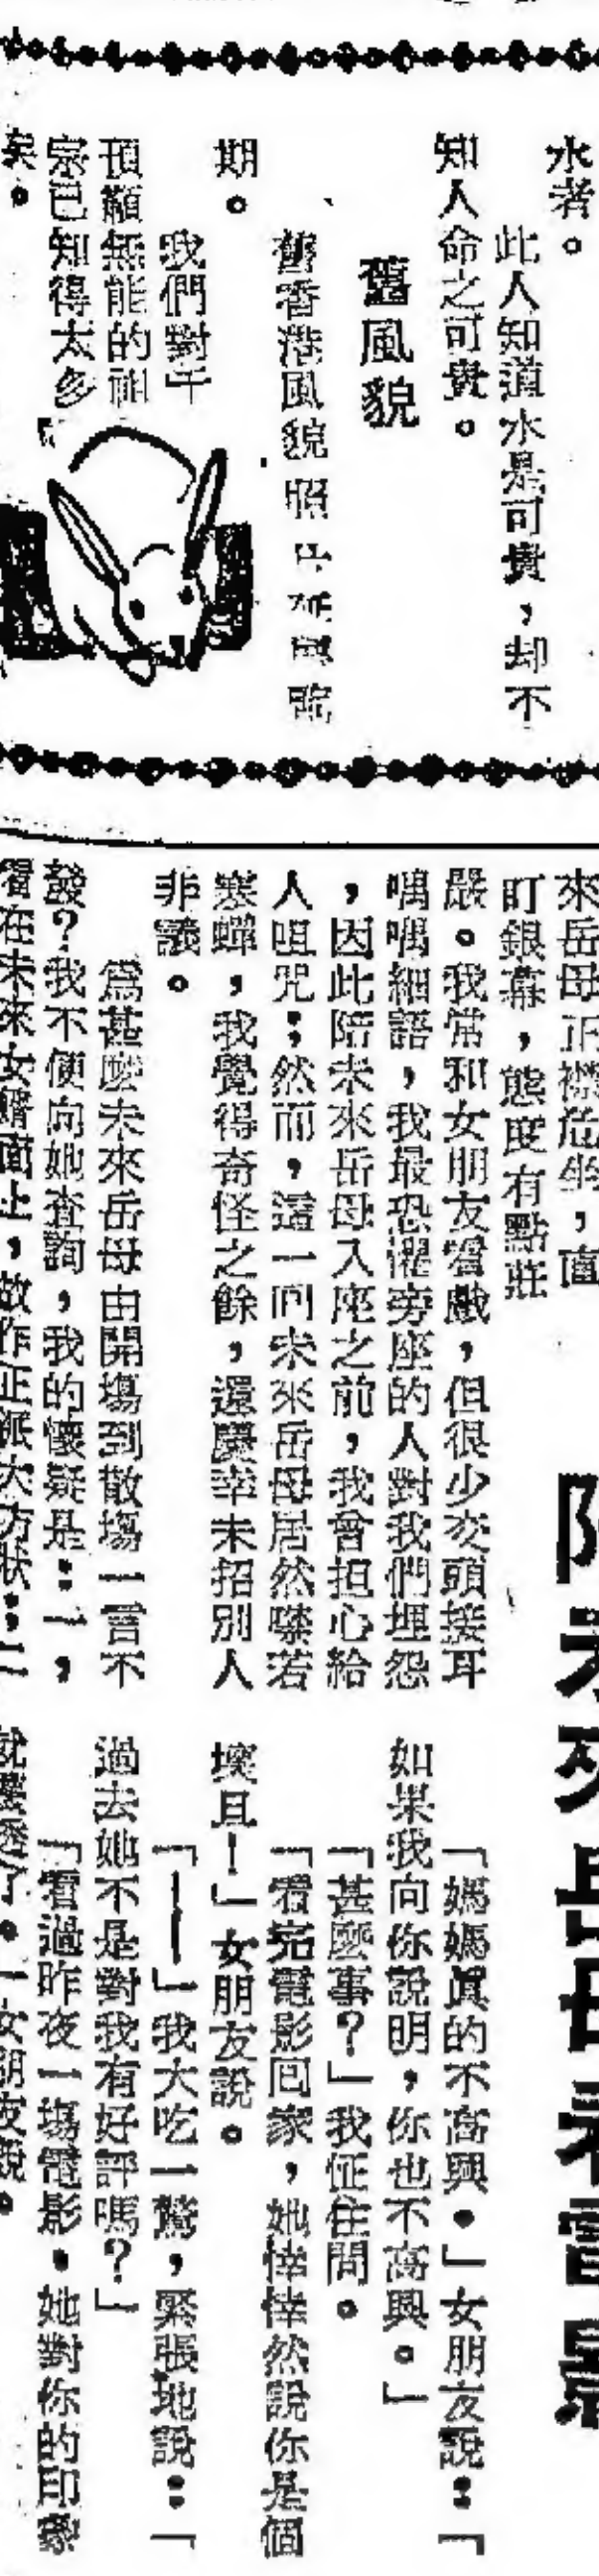 水者。
此人知道水是可貴，却不
知人命之可貴。
舊風貌
舊香港風貌照片
期。
我們對千
頂顢無能的祖
宗已知得太多
矣。
陪未來岳母看電影
來岳母正襟危坐，直
盯銀幕，態度有點莊
嚴。我常和女朋友看戲，但很少交頭接耳
喁喁細語，我最恐懼旁座的人對我們埋怨
，因此陪未來岳母入座之前，我曾担心給
人咀咒；然而，這一囘未來岳母居然噤若
寒蟬，我覺得奇怪之餘，還慶幸未招別人
非議。
爲甚麽未來岳母由開塲到散塲一言不
發？我不便向她查詢，我的懷疑是：一，
看在未來女婿面上，故作正派大方狀；二
「媽媽眞的不高興。」女朋友說：「
如果我向你說明，你也不高興。」
「甚麽事？」我怔住問。
「看完電影囘家，她悻悻然說你是個
壞旦！」女朋友說。
「——」我大吃一驚，緊張地說：「
過去她不是對我有好評嗎？」
「看過昨夜一塲電影，她對你的印象
就壞透了。」女朋友說。